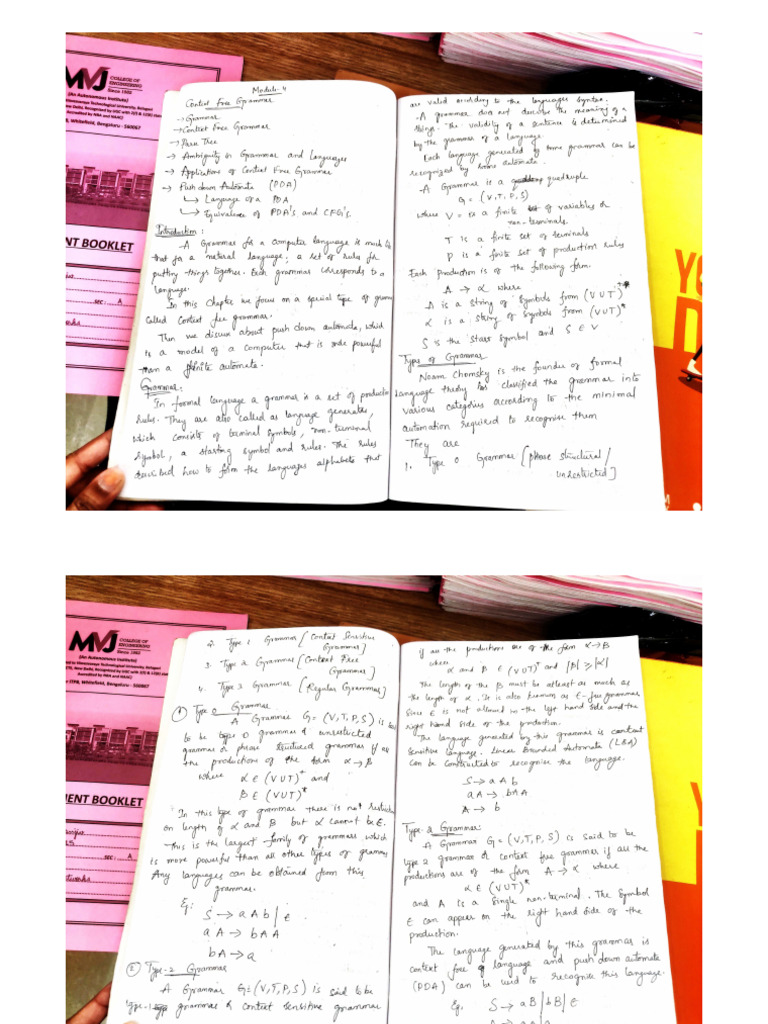 MVJ
COLLEGE OF
ENGINEERING
Since 1982
(An Autonomous Institute)
Accredited by NBA and NAAC)
Whitefield, Bengaluru - 560067
ENT BOOKLET
sec: A
Module-4
Context Free Grammar
→ Grammar
→ Context Free Grammar
→ Parse Tree
→ Ambiguity in Grammar and Languages
→ Applications of Context Free Grammar
→ Push down Automata (PDA)
↳ Language of a PDA
↳ Equivalence of PDA's and CFG's.
Introduction:
A Grammar for a computer language is much
that for a natural language; a set of rules for
putting things together. Each grammar corresponds to a
language.
In this chapter we focus on a special type of
called Context free grammar.
Then we discuss about push down automata, which
is a model of a computer that is more powerful
than a finite automata.
Grammar:
In formal language a grammar is a set of
rules. They are also called as language generates,
which consists of terminal symbols, non-terminal
symbol, a starting symbol and rules. The rules
described how to form the languages alphabets that
are valid according to the languages syntax.
A grammar does not describe the meaning of a
things. The validity of a sentence is determined
by the grammar of a language.
Each language generated by some grammar can be
recognized by some automata.
A Grammar is a quadruple
G = (V, T, P, S)
where V = is a finite set of variables or
non-terminals.
T is a finite set of terminals
P is a finite set of production rules
Each production is of the following form.
A → α where
A is a string of symbols from (VUT)*
α is a string of symbols from (VUT)*
S is the start symbol and S ∈ V
Types of Grammar
Noam Chomsky is the founder of formal
language theory classified the grammar into
various categories according to the minimal
automation required to recognise them
They are
1. Type 0 Grammar [phase structural/
unrestricted]
MVJ
COLLEGE OF
ENGINEERING
Since 1982
(An Autonomous Institute)
Accredited by NBA and NAAC)
Whitefield, Bengaluru - 560067
ENT BOOKLET
sec: A
2. Type 1 Grammar [Context Sensitive
Grammar]
3. Type 2 Grammar [Context Free
Grammar]
4. Type 3 Grammar [Regular Grammar]
① Type 0 Grammar
A Grammar G = (V, T, P, S) is
to be type 0 grammar & unrestricted
grammar or phrase structured grammar if all
the productions of the form α → β
where α ∈ (VUT)+ and
β ∈ (VUT)*
In this type of grammar there is not
on length of α and β but α cannot be ε.
This is the largest family of grammars which
is more powerful than all other types of
Any languages can be obtained from this
grammar.
Eg:
S → aAb | ε
aA → bAA
bA → a
② Type-2 Grammar
A Grammar G = (V, T, P, S) is said to be
Type-1 grammar & context sensitive grammar
if all the productions are of the form α → β
where
α and β ∈ (VUT)+ and |β| ≥ |α|
The length of the β must be atleast as much as
the length of α. It is also known as ε-free grammar
since ε is not allowed in the left hand side and the
right hand side of the production.
The language generated by this grammar is context
sensitive language. Linear Bounded Automata (LBA)
can be constructed to recognise the language.
S → aAb
aA → bAA
A → b
Type-2 Grammar:
A Grammar G = (V, T, P, S) is said to be
type 2 grammar or context free grammar if all the
productions are of the form A → α where
α ∈ (VUT)*
and A is a single non-terminal. The symbol
ε can appear on the right hand side of the
production.
The language generated by this grammar is
context free language and push down automata
(PDA) can be used to recognise this language.
Eg. S → aB | bB | ε